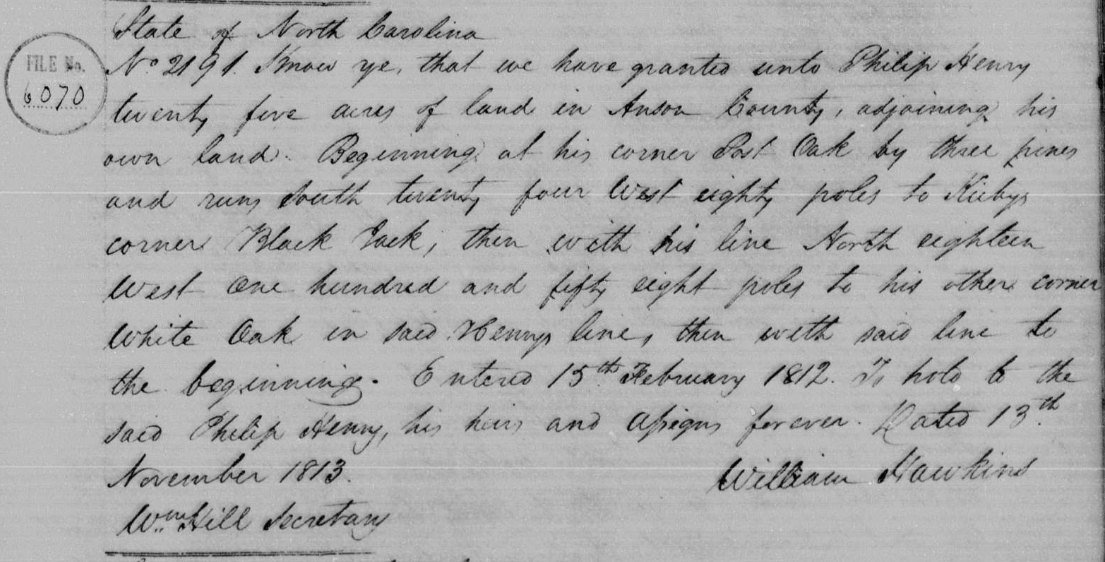 State of North Carolina
FILE No.
6070
No 2191. Know ye, that we have granted unto Philip Henry
twenty five acres of land in Anson County, adjoining his
own land. Beginning at his corner Post Oak by three pines
and runs South twenty four West eighty poles to Kirbys
corner Black Jack, then with his line North eighteen
West One hundred and fifty eight poles to his other corner
White Oak in said Henrys line, then with said line to
the beginning. Entered 15th February 1812. To hold to the
said Philip Henry, his heirs and assigns forever. Dated 13th
November 1813.
William Hawkins
Wm Hill Secretary